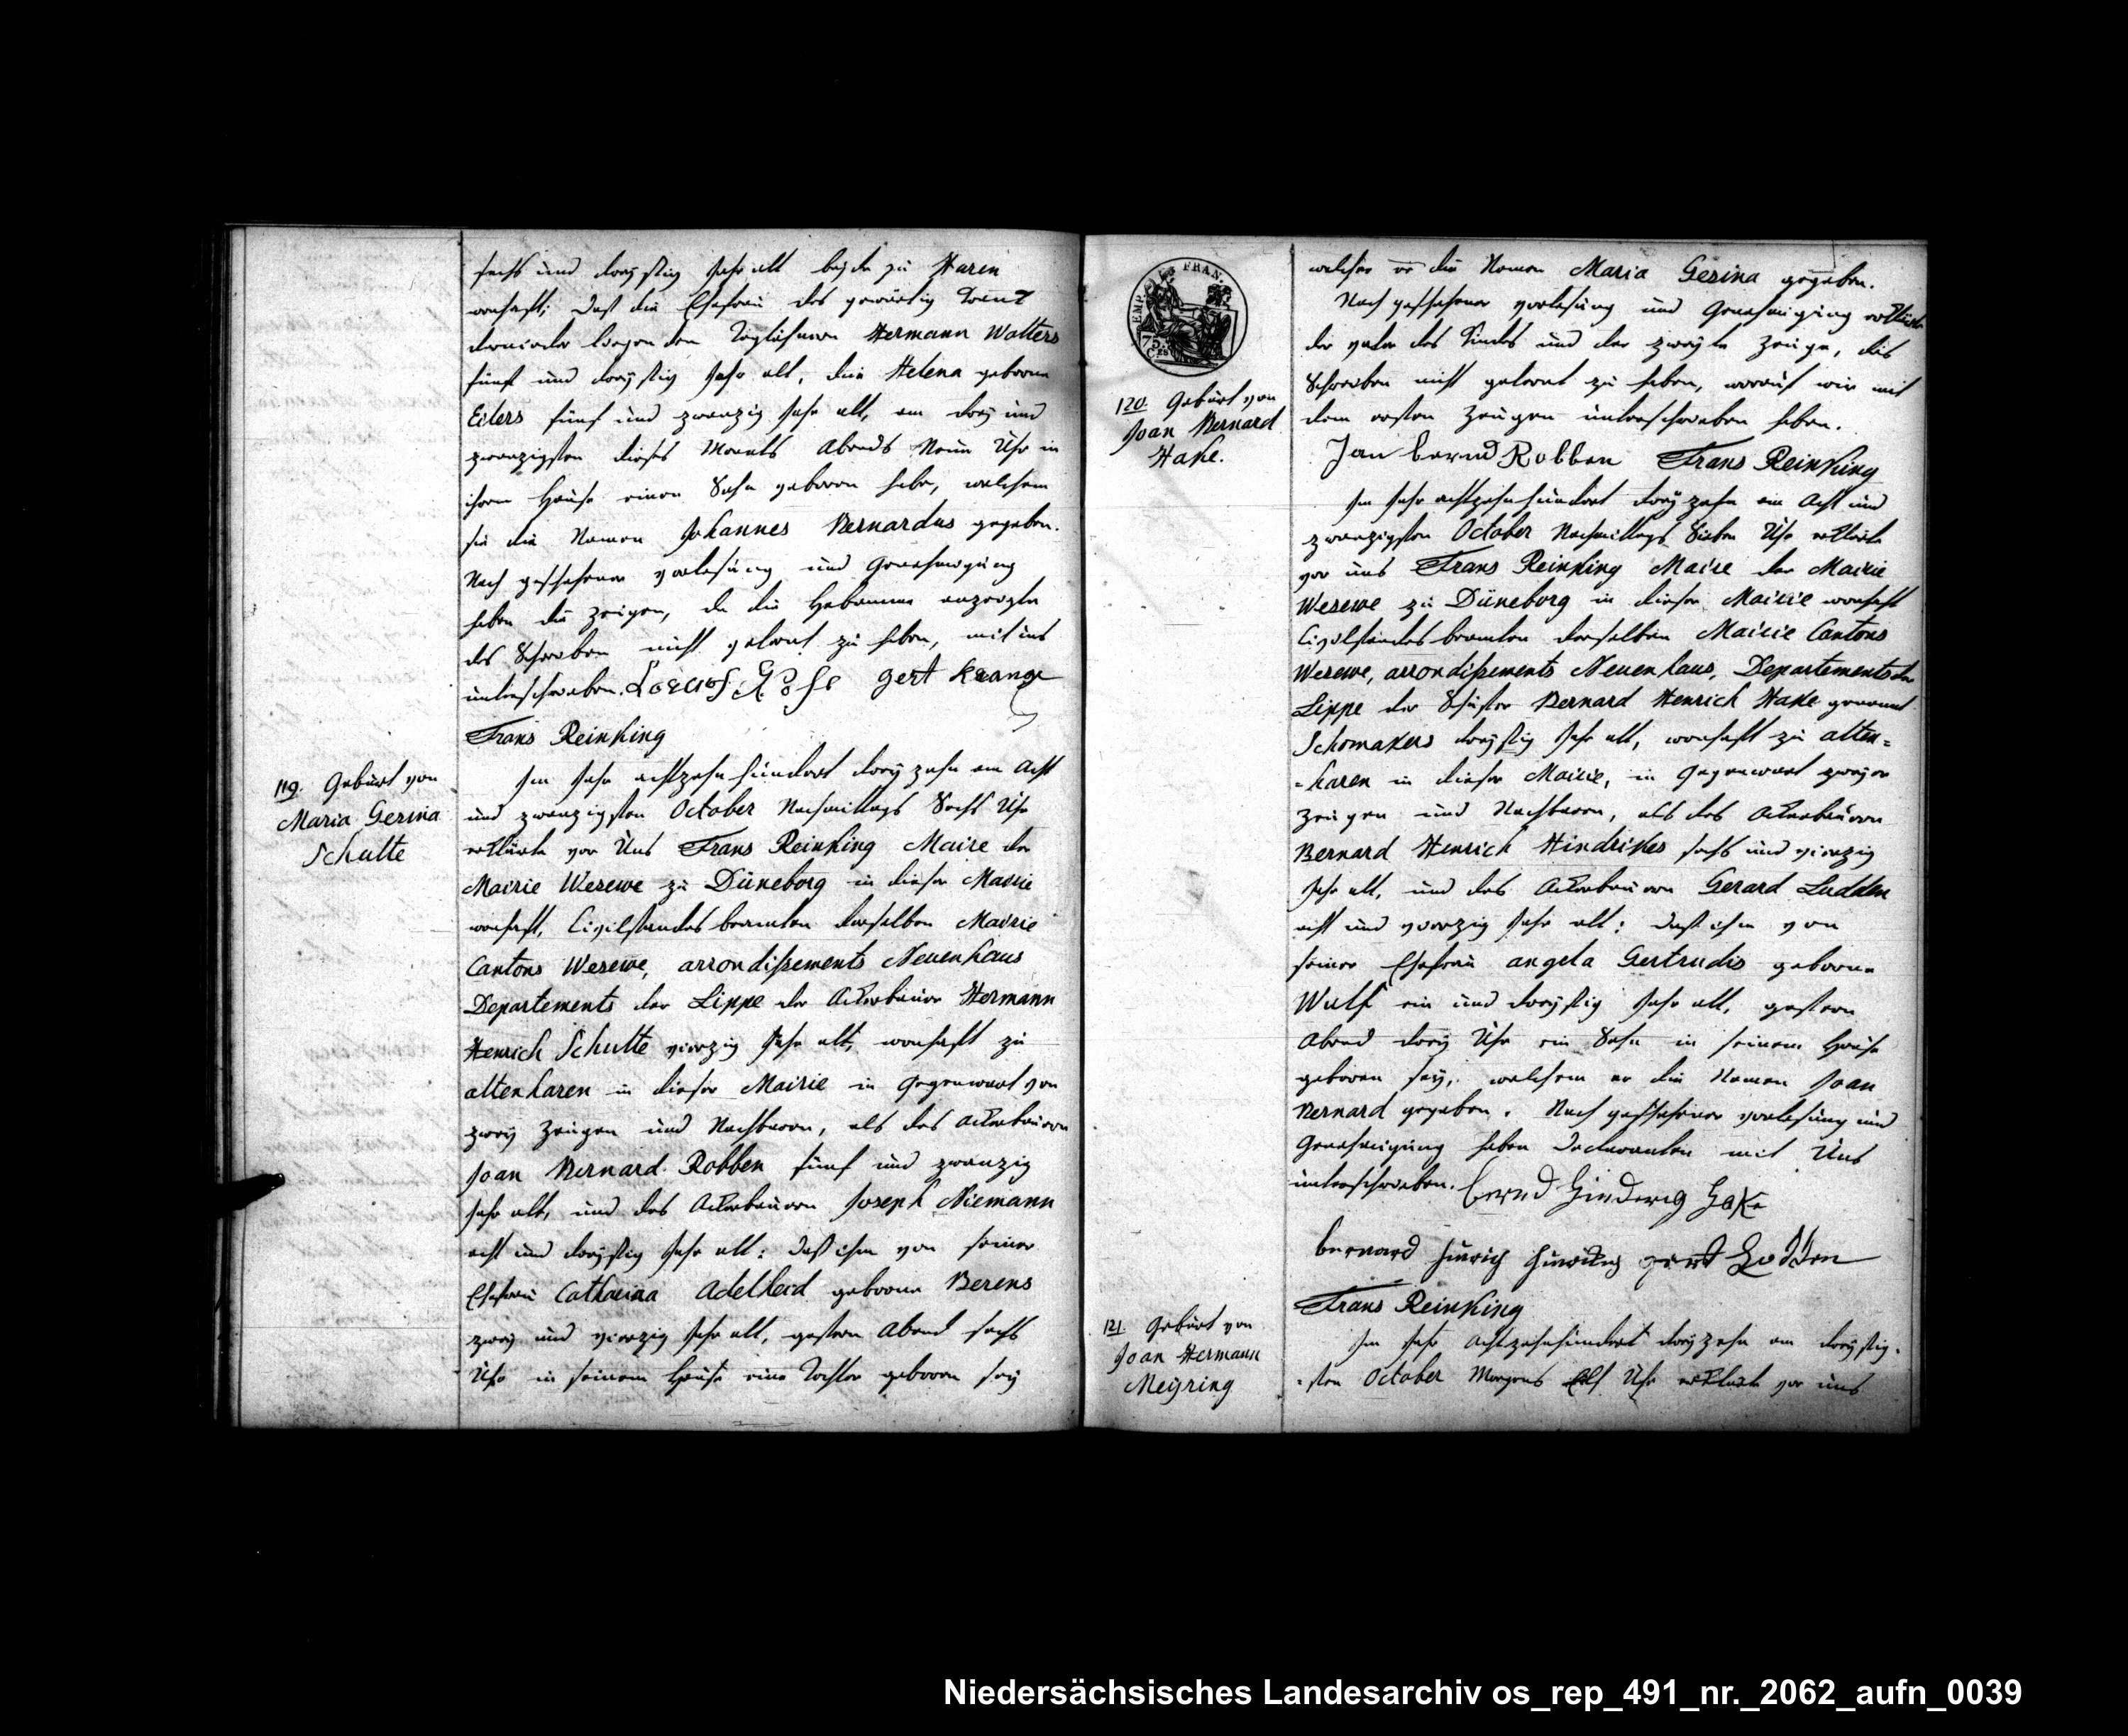 sechs und dreÿssig Jahr alt beÿde zu Haren
wonhaft; daß die Ehefrau des gewärtig krank
danieder liegenden Taglöhners Hermann Wolters
fünf und dreÿssig Jahr alt, die Helena geborne
Eilers fünf und zwanzig Jahr alt, am dreÿ und
zwanzigsten dieses Monats Abends Neun Uhr in
ihrem Hause einen Sohn geboren habe, welchem
sie die Namen Johannes Bernardus gegeben.
Nach geschehener vorlesung und Genehmigung
haben die Zeugen, da die Hebamme anzeigte
das Schreiben nicht gelernt zu haben, mit uns
unterschrieben. gert Krange
Frans Reinking
119. Geburt von
Maria Gesina
Schulte
Im Jahr achtzehnhundert dreÿzehn am Acht
und zwanzigsten October Nachmittags Sechs Uhr
erklärte vor Uns Frans Reinking Maire der
Mairie Wesewe zu Düneborg in dieser Mairie
wonhaft, Civilstandesbeamten derselben Mairie
Cantons Wesewe, arrondißements Neuenhaus
Departements der Lippe der Ackerbauer Hermann
Henrich Schulte vierzig Jahr alt, wonhaft zu
altenharen in dieser Mairie in Gegenwart von
zweÿ Zeugen und Nachbaren, als des Ackerbauern
Joan Bernard Robben fünf und zwanzig
Jahr alt, und des Ackerbauern Joseph Niemann
acht und dreÿssig Jahr alt: daß ihm von seiner
Ehefrau Catharina Adelheid geborne Berens
zweÿ und vierzig Jahr alt, gestern Abend sechs
Uhr in seinem Hause eine Tochter geboren seÿ
EMPIRE FRAN.
75.
Ces
welcher er die Namen Maria Gesina gegeben.
Nach geschehener vorlesung und Genehmigung erklärte
der vater des Kindes und der zweÿte Zeuge, das
Schreiben nicht gelernt zu haben, worauf wir mit
dem ersten Zeugen unterschrieben haben.
Jan bernd Robben Frans Reinking
120. Geburt von
Joan Bernard
Hake.
Im Jahr achtzehnhundert dreÿzehn am Acht und
zwanzigsten October Nachmittags Sieben Uhr erklärte
vor uns Frans Reinking Maire der Mairie
Wesewe zu Düneborg in dieser Mairie wonhaft
Civilstandesbeamten derselben Mairie Cantons
Wesewe, arrondißements Neuenhaus, Departements der
Lippe der Schuster Bernard Henrich Hake genannt
Schomakers dreÿssig Jahr alt, wonhaft zu alten=
=haren in dieser Mairie, in Gegenwart zweÿer
Zeugen und Nachbaren, als des Ackerbauern
Bernard Henrich Hindrikes sechs und vierzig
Jahr alt, und des Ackerbauern Gerard Ludden
acht und vierzig Jahr alt: daß ihm von
seiner Ehefrau angela Gertrudis geborne
Wulf ein und dreÿssig Jahr alt, gestern
Abend dreÿ Uhr ein Sohn in seinem Hause
geboren seÿ, welchem er die Namen Joan
Bernard gegeben. Nach geschehener vorlesung und
Genehmigung haben Declaranten mit Uns
unterschrieben. bernd Hinderig Hake
bernard Hinrich gert Lodden
Frans Reinking
121. Geburt von
Joan Hermann
Meÿring
Im Jahr Achtzehnhundert dreÿzehn am dreÿssig-
-sten October Morgens Elf Uhr erklärte vor uns
Niedersächsisches Landesarchiv os_rep_491_nr._2062_aufn_0039